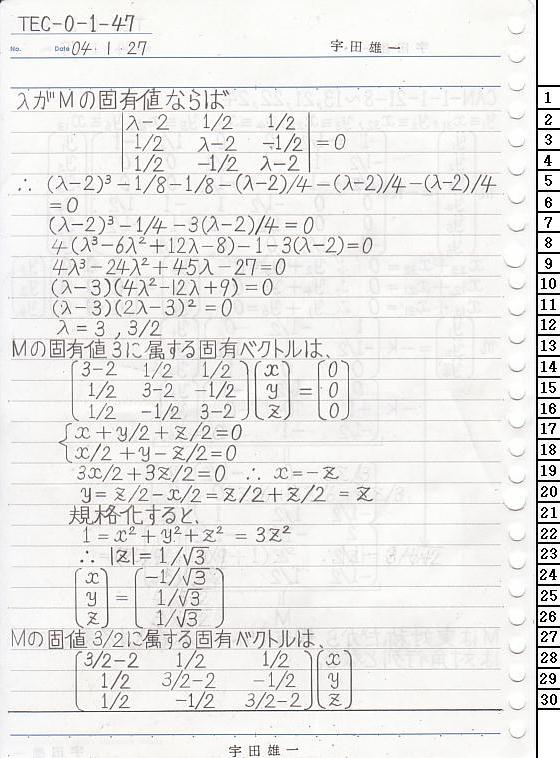 TEC-0-1-47
No.
Date 04・1・27
宇田雄一
λがMの固有値ならば
|λ-2 1/2 1/2|
|1/2 λ-2 -1/2| = 0
|1/2 -1/2 λ-2|
∴ (λ-2)³-1/8-1/8-(λ-2)/4-(λ-2)/4-(λ-2)/4
=0
(λ-2)³-1/4-3(λ-2)/4=0
4(λ³-6λ²+12λ-8)-1-3(λ-2)=0
4λ³-24λ²+45λ-27=0
(λ-3)(4λ²-12λ+9)=0
(λ-3)(2λ-3)²=0
λ=3, 3/2
Mの固有値3に属する固有ベクトルは、
(3-2 1/2 1/2)(x) (0)
(1/2 3-2 -1/2)(y) = (0)
(1/2 -1/2 3-2)(z) (0)
{x+y/2+z/2=0
{x/2+y-z/2=0
3x/2+3z/2=0 ∴ x=-z
y=z/2-x/2=z/2+z/2=z
規格化すると、
1=x²+y²+z²=3z²
∴|z|=1/√3
(x) (-1/√3)
(y) = (1/√3)
(z) (1/√3)
Mの固値3/2に属する固有ベクトルは、
(3/2-2 1/2 1/2)(x)
(1/2 3/2-2 -1/2)(y)
(1/2 -1/2 3/2-2)(z)
宇田雄一
1
2
3
4
5
6
7
8
9
10
11
12
13
14
15
16
17
18
19
20
21
22
23
24
25
26
27
28
29
30